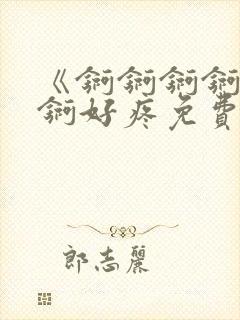 《锕锕锕锕
锕好疼免費
郎志麗